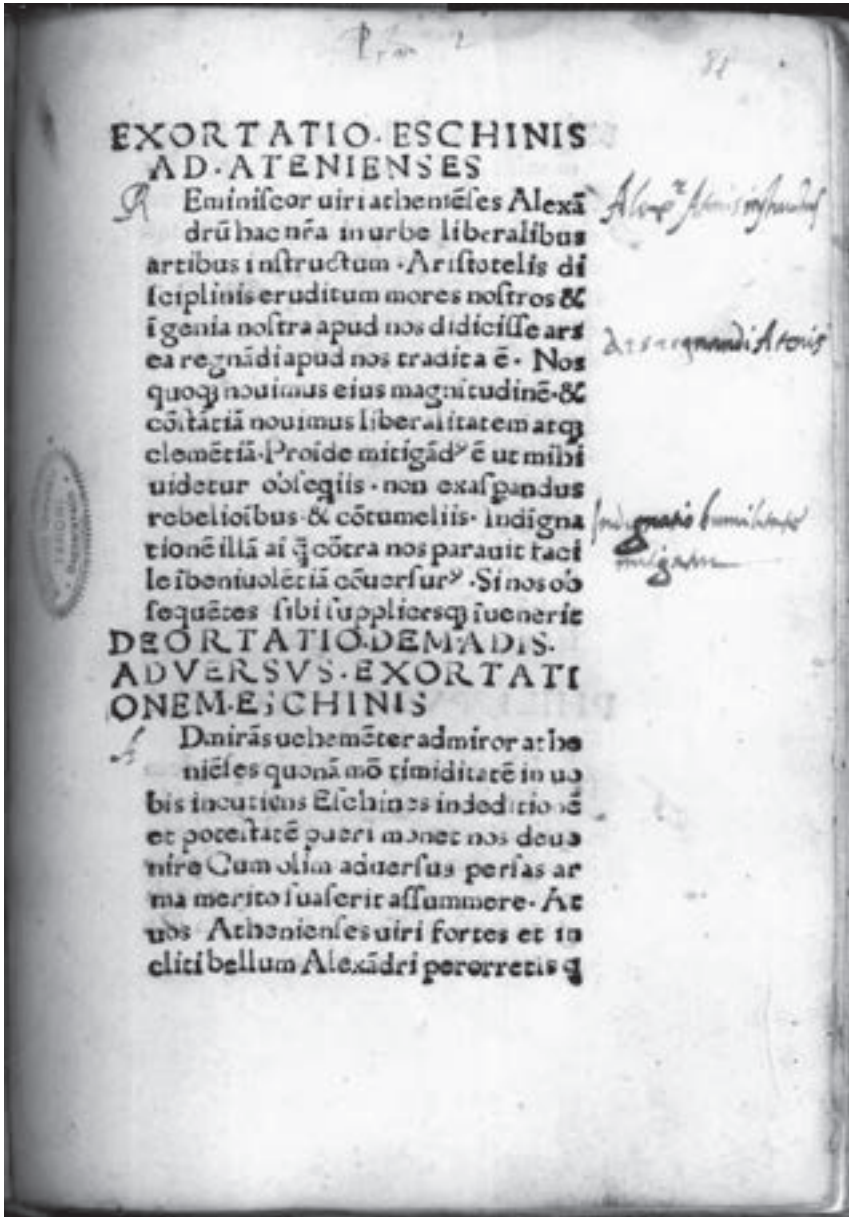 81
EXORTATIO·ESCHINIS
AD·ATENIENSES
R Eminiſcor uiri atheniẽſes Alexã
drũ hac nr̃a in urbe liberalibus
artibus inſtructum·Ariſtotelis di
ſciplinis eruditum mores noſtros &
ĩgenia noſtra apud nos didiciſſe ars
ea regnãdi apud nos tradita ẽ· Nos
quoqꝫ nouimus eius magnitudinẽ·&
cõſtãtiã nouimus liberalitatem atqꝫ
clemẽtiã·Proĩde mitigãdꝰ ẽ ut mihi
uidetur obſeqiis·non exaſꝑandus
rebelioĩbus·& cõtumeliis·Indigna
tionẽ illã aĩ q̃ cõtra nos parauit faci
le ĩbeniuolẽtiã cõuerſurꝰ·Si nos ob
ſequẽtes ſibi ſuppliceſqꝫ ĩuenerit
DEORTATIO·DEMADIS·
ADVERSVS·EXORTATI
ONEM·ESCHINIS
A Dmirãs uehemẽter admiror athe
niẽſes quonã mõ timiditatẽ in uo
bis incutiens Eſchines indeditionẽ
et poteſtatẽ pueri monet nos deue
nire Cum olim aduerſus perſas ar
ma merito ſuaſerit aſſummere· At
uos Athenienſes uiri fortes et in
cliti bellum Alexãdri perorretis q
Ars regnandi Atenis
Indignatio humilitate